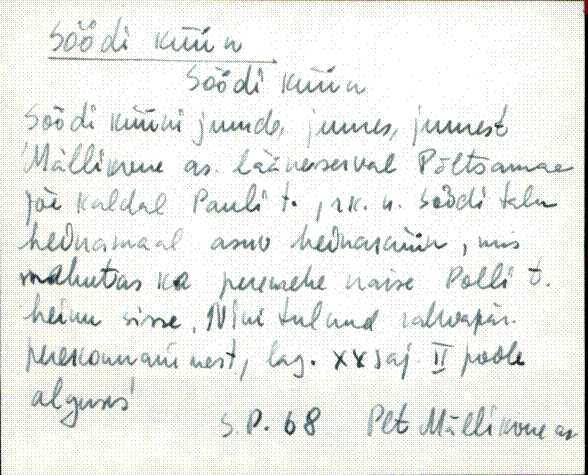 Söödi küün
Söödi küün
Söödi küüni juurde, juures, juurest
Mällikvere as. lääneserval Põltsamaa
jõe kaldal Pauli t., rk. n. Söödi talu
heinamaal asuv heinaküün, mis
mahutas ka peremehe naise Polli t.
heinu sisse. Nimi tulnud rahvapär.
perekonnanimest, lag. XX saj II poole
alguses
S.P. 68 Plt Mällikvere as